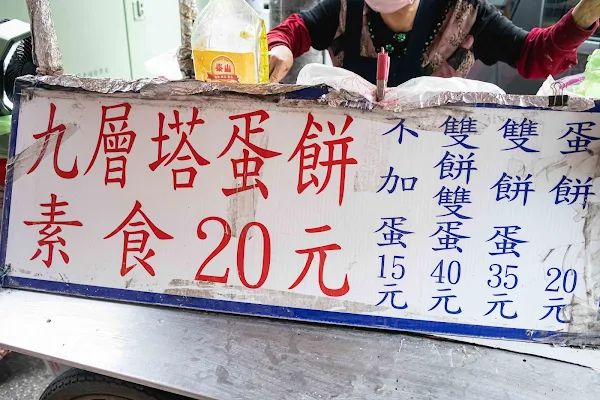 泰山
九層塔蛋餅
素食20元
蛋餅 20元
雙餅蛋35元
雙餅雙蛋40元
不加蛋15元